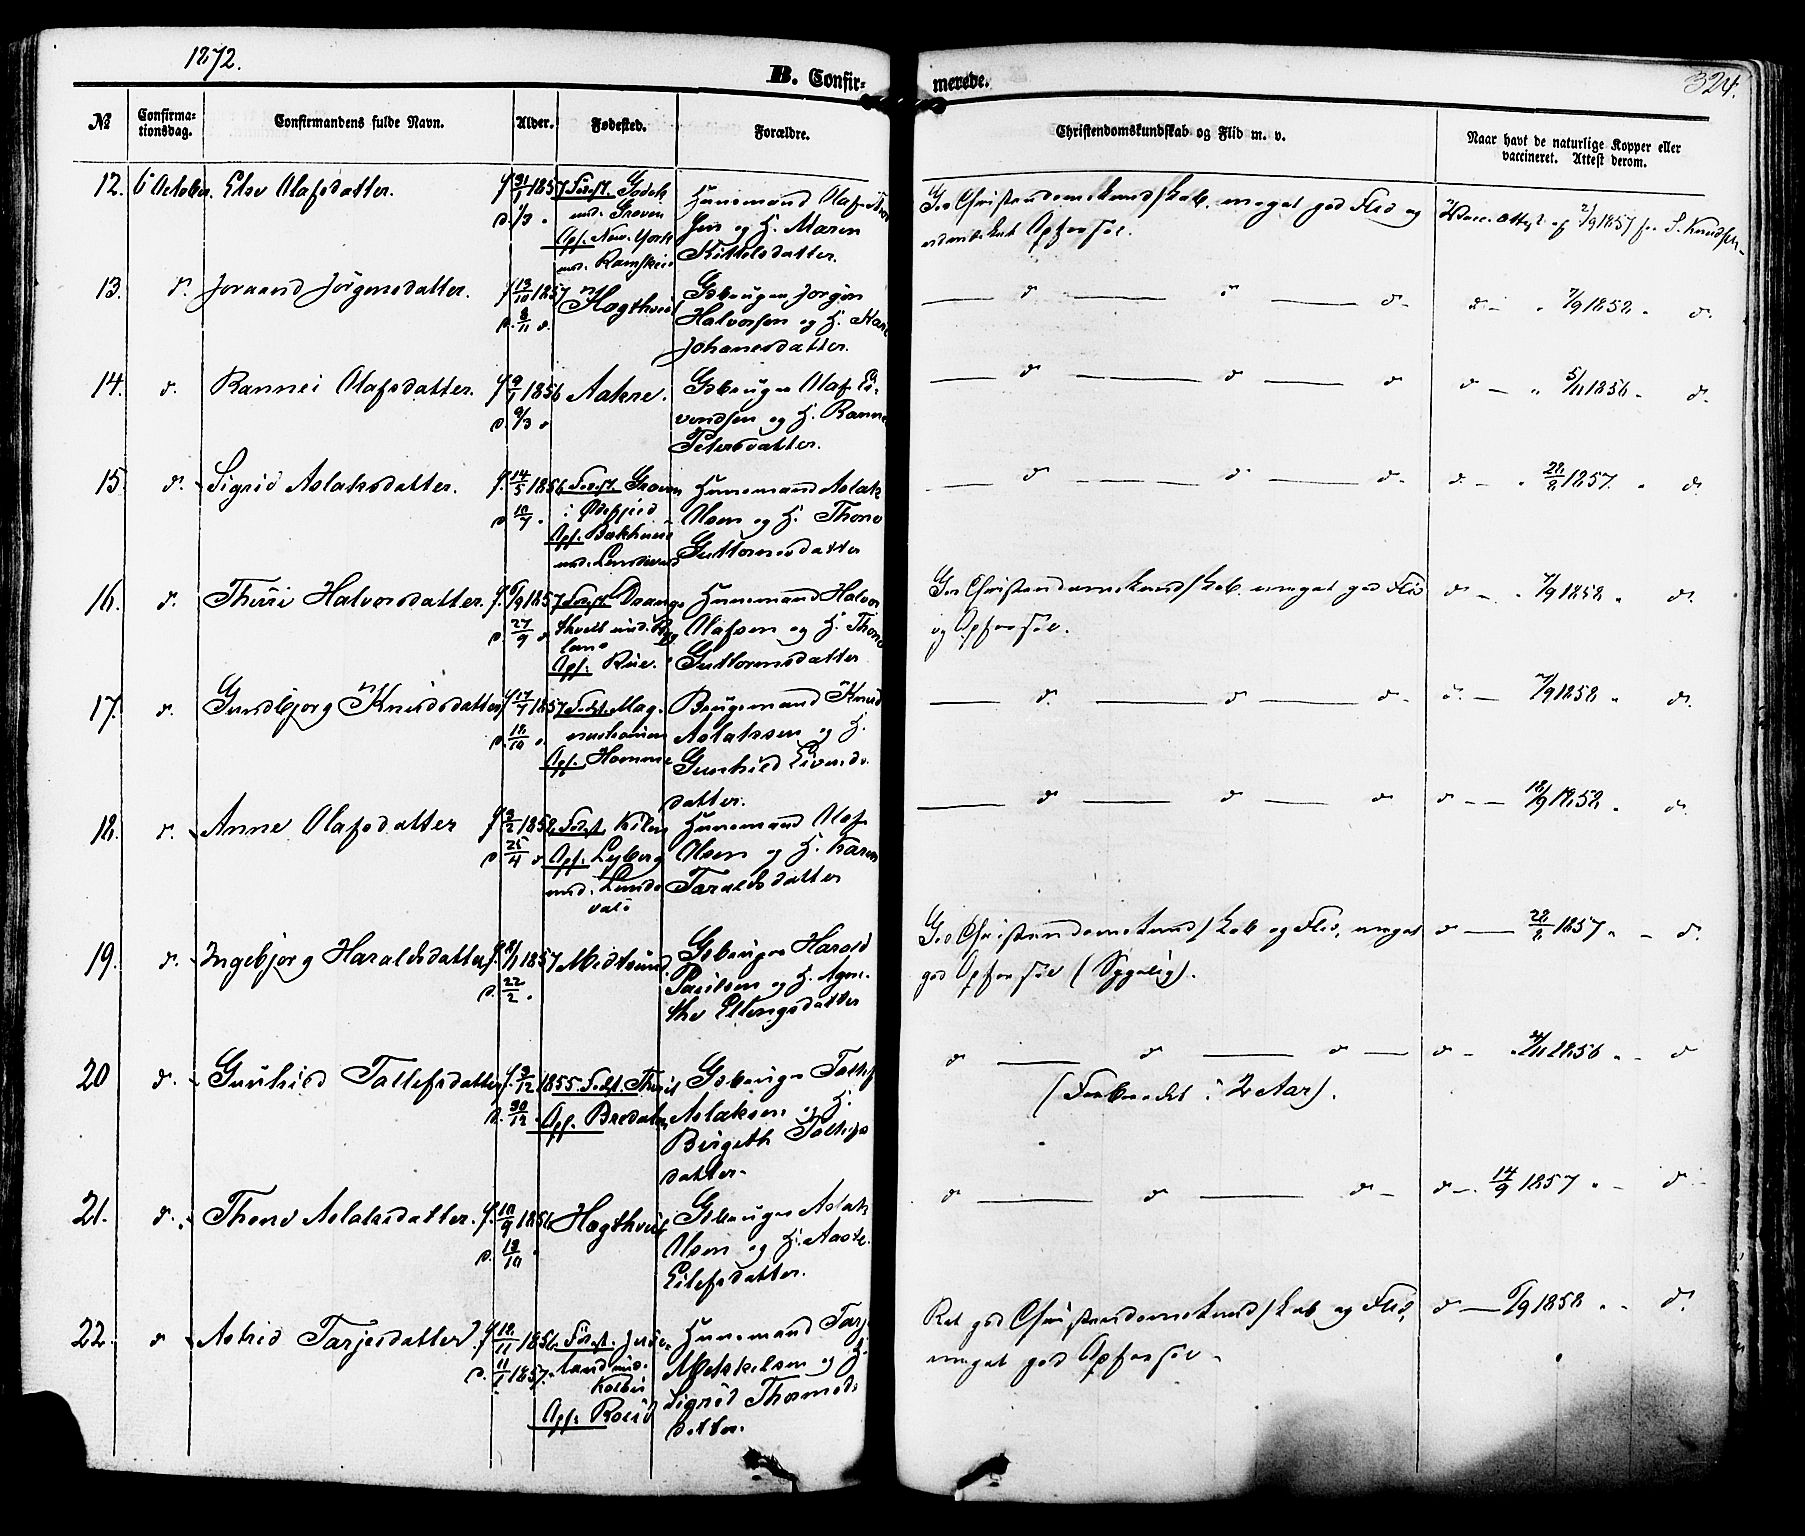 1872.
B. Confir-
merede.
324.
№
Confirma-
tionsdag.
Confirmandens fulde Navn.
Alder.
Fødested.
Forældre.
Christendomskundskab og Flid m. v.
Naar havt de naturlige Kopper eller
vaccineret. Attest derom.
12. 6 October. Else Olafsdatter.
f. 31/1 1857
d. 1/3
und. Groven
Opf. New-York
Huusmand Olaf
og H. Maren
Kittelsdatter.
God Christendomskundskab, meget god Flid og
Opførsel.
Vacc. Attest af 2/9 1857 fr S. Knudsen
13. d. Joraand Jörgensdatter.
f. 13/10 1857
d. 8/11 d.
Hægtveit
Gbruger Jörgen
Halvorsen og H. Kari
Johannesdatter.
d d d d. 7/9 1858 d.
14. d. Rannei Olafsdatter.
f. 9/1 1856
d. 9/3
Aakre.
Gbruger Olaf Ei-
vendsen og H. Ranne
Petersdatter.
d d d d 5/11 1856 d.
15. d. Sigrid Aslaksdatter.
f. 14/5 1856
Fødest. Groven
i Ødefjeld
Huusmand Aslak
Olsen og H. Thone
Guttormsdatter
d d d d. 28/8 1857. d.
16. d. Thori Halvorsdatter.
f. 6/9 1857
d. 27/9 d.
Fødest. Drange
Opf. Rue.
Huusmand Halvor
Olafsen og H. Thone
Guttormsdatter
God Christendomskundskab, meget god Flid
og Opførsel.
d 7/9 1858 d.
17. d. Gundbjorg Knudsdatter
f. 17/7 1857
d. 18/10 d.
Opf. Homme
Brugsmand Knud
Aslaksen og H.
Gunhild Eivends-
datter.
d. d d d. 7/9 1858 d.
18. d. Anne Olafsdatter
f. 3/2 1858
d. 25/4 d
Fødest. Kilen
Opf. Lyberg
und. Lunde-
val
Huusmand Olaf
Olsen og H. Karen
Taraldsdatter
d d d d 18/9 1858 d.
19. d. Ingebjorg Haraldsdatter
f. 8/1 1857
d. 22/2
Midtsund.
Gbruger Harald
Poulsen og H. Agne-
the Ellingsdatter
God Christendomskundskab og Flid, meget
god Opførsel (Sygelig).
d 28/8 1857 d.
20 d. Gunhild Tallefsdatter
f. 3/12 1855.
d. 30/12
Opf. Bredalen
Gbruger Tallef
Aslaksen og H.
Birgeth Tallefs
datter.
d d d d 2/11 1856 d
(Forberedet i 2 Aar).
21. d. Thone Aslaksdatter.
f. 10/9 1856
d. 19/10
Hægtveit
Gbruger Aslak
Olsen og H. Aaste
Eilefsdatter.
d d d d 14/9 1857 d
22. d Astrid Tarjesdatter
f. 18/11 1856
d. 11/1 1857.
Opf. Roesid
Huusmand Tarje
Metskelsen og H.
Sigrid Thormods-
datter.
Ret god Christendomskundskab og Flid,
meget god Opførsel.
d 6/9 1858 d.